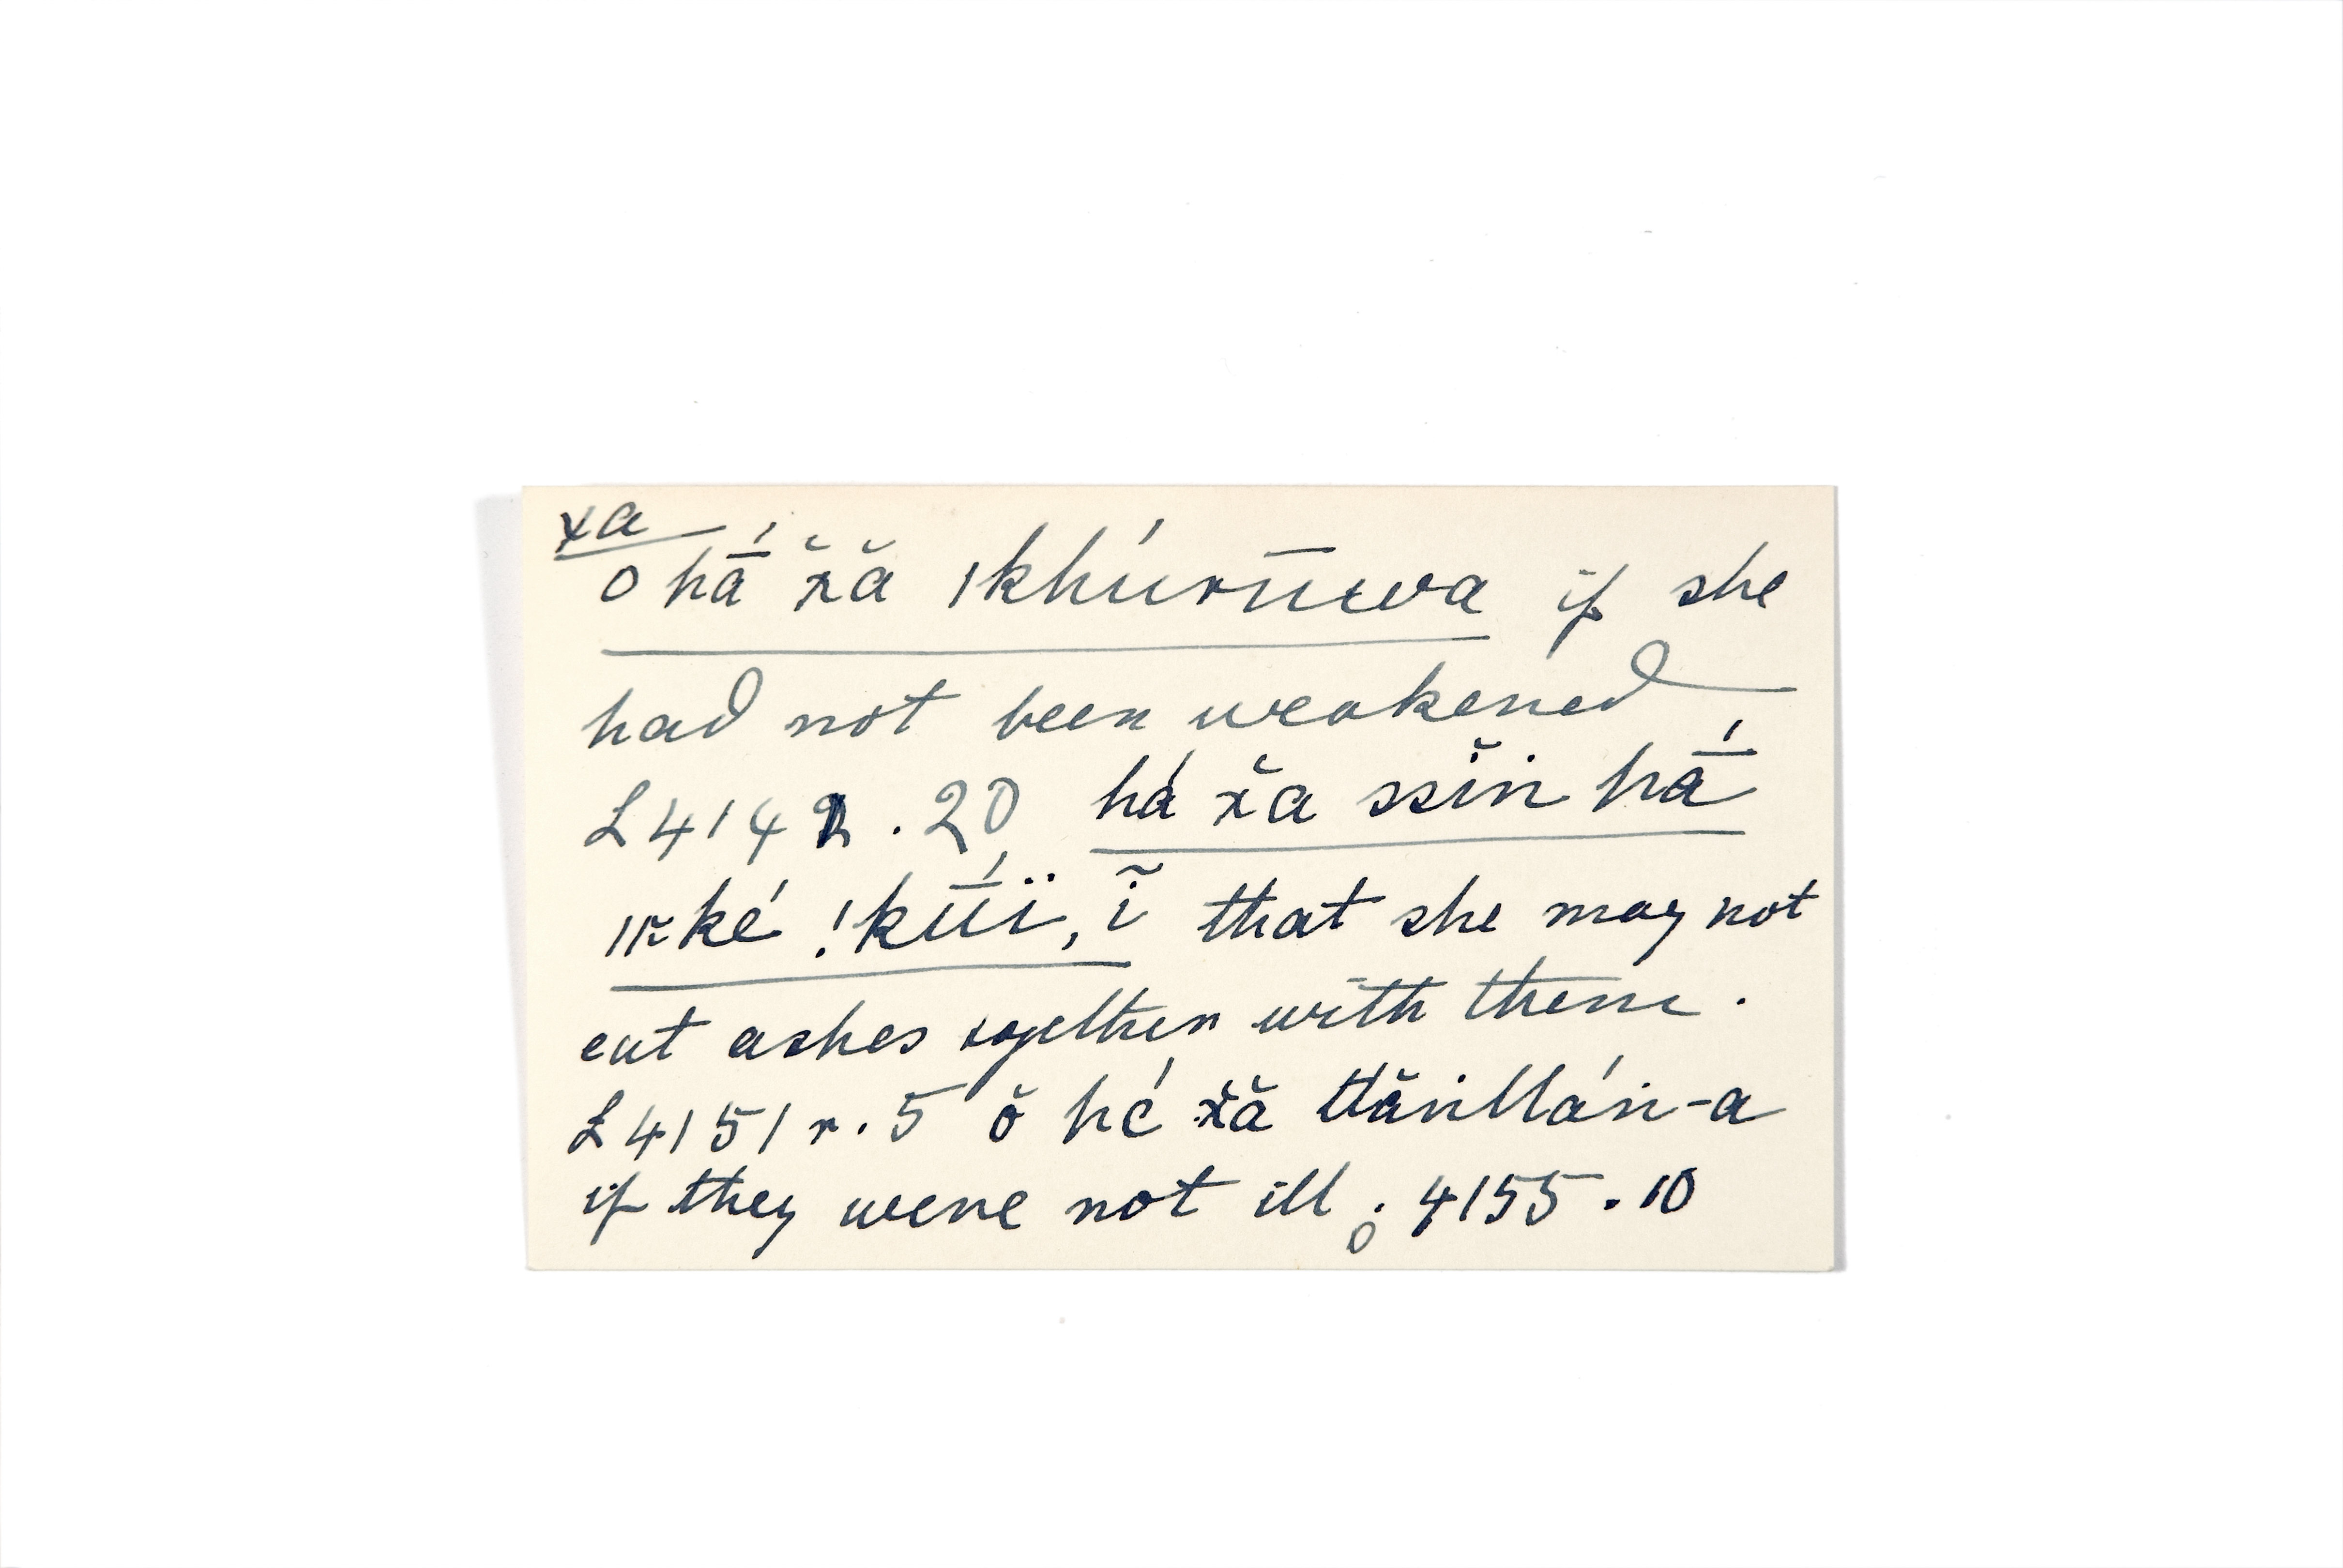 xa
o hā́ x̆ă |khúrūwa if she
had not been weakened
L 4142 . 20 há x̆a ssĭn hā́
ké !kū́ï, ĩ that she may not
eat ashes together with them .
L 4151 r. 5 ŏ hé x̆ă ttăńllán-a
if they were not ill . 4155 . 10